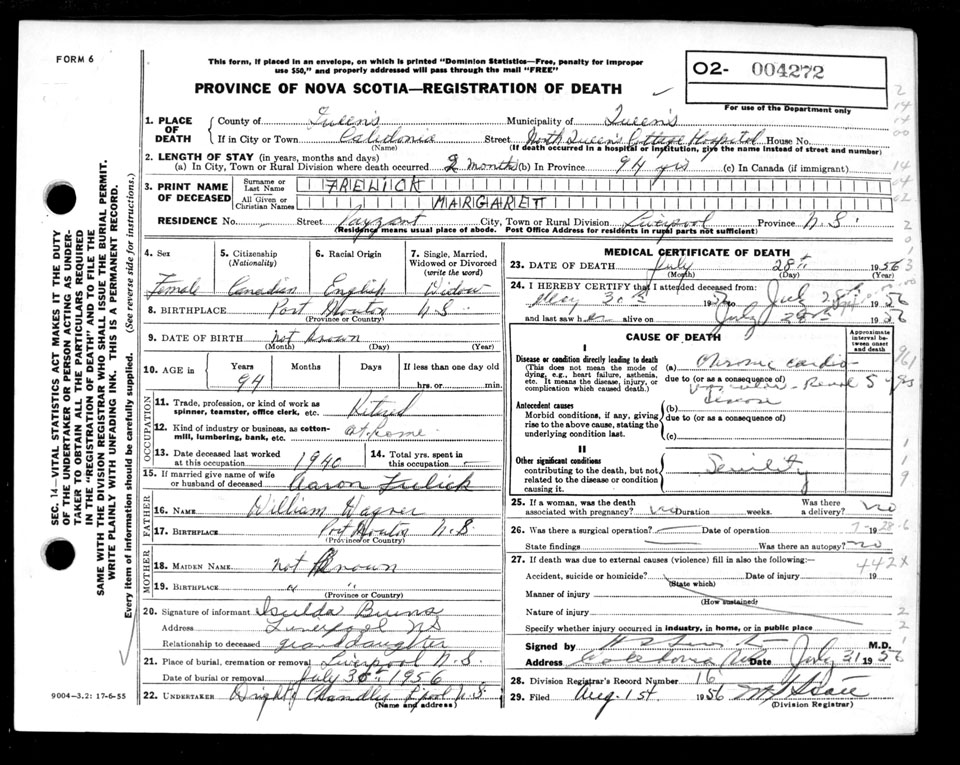 FORM 6
This form, if placed in an envelope, on which is printed "Dominion Statistics—Free, penalty for improper
use $50," and properly addressed will pass through the mail "FREE"
PROVINCE OF NOVA SCOTIA—REGISTRATION OF DEATH
O2- 004272
For use of the Department only
1. PLACE OF DEATH
County of Queen's Municipality of Queen's
If in City or Town Caledonia Street North Queen's Cottage Hospital House No.
(Name) (If death occurred in a hospital or institution, give the name instead of street and number)
2. LENGTH OF STAY (in years, months and days)
(a) In City, Town or Rural Division where death occurred 2 months (b) In Province 94 yrs (c) In Canada (if immigrant)
3. PRINT NAME OF DECEASED
Surname or Last Name FRELICK
All Given or Christian Names MARGARETT
RESIDENCE No. Street Payzant City, Town or Rural Division Liverpool Province N.S.
(Residence means usual place of abode. Post Office Address for residents in rural parts not sufficient)
4. Sex Female
5. Citizenship (Nationality) Canadian
6. Racial Origin English
7. Single, Married, Widowed or Divorced (write the word) Widow
8. BIRTHPLACE Port Mouton N.S.
(Province or Country)
9. DATE OF BIRTH not known
(Month) (Day) (Year)
10. AGE in Years Months Days If less than one day old
94 hrs. or min.
OCCUPATION
11. Trade, profession, or kind of work as spinner, teamster, office clerk, etc. Retired
12. Kind of industry or business, as cotton-mill, lumbering, bank, etc. at home
13. Date deceased last worked at this occupation 1940
14. Total yrs. spent in this occupation
15. If married give name of wife or husband of deceased Aaron Frelick
FATHER
16. NAME William Wagner
17. BIRTHPLACE Port Mouton N.S.
(Province or Country)
MOTHER
18. MAIDEN NAME not Known
19. BIRTHPLACE " "
(Province or Country)
20. Signature of informant Burns
Address Liverpool NS
Relationship to deceased granddaughter
21. Place of burial, cremation or removal Liverpool N.S.
Date of burial or removal July 30th 1956
22. UNDERTAKER Dwight Chandler L'pool N.S.
(Name and address)
MEDICAL CERTIFICATE OF DEATH
23. DATE OF DEATH July 28th 1956
(Month) (Day)
24. I HEREBY CERTIFY that I attended deceased from:
May 30th 1956 July 28th 1956
and last saw her alive on July 28th 1956
CAUSE OF DEATH
Approximate interval between onset and death
I
Disease or condition directly leading to death
(This does not mean the mode of dying, e.g., heart failure, asthenia, etc. It means the disease, injury, or complication which caused death.)
(a) Chronic cardio
due to (or as a consequence of)
vascular - Renal 5 yrs
disease
Antecedent causes
Morbid conditions, if any, giving rise to the above cause, stating the underlying condition last.
(b)
due to (or as a consequence of)
(c)
II
Other significant conditions
contributing to the death, but not related to the disease or condition causing it.
Senility
25. If a woman, was the death associated with pregnancy? no Duration weeks. Was there a delivery? no
26. Was there a surgical operation? Date of operation 19
State findings Was there an autopsy? no
27. If death was due to external causes (violence) fill in also the following:— 442X
Accident, suicide or homicide? Date of injury 19
(State which)
Manner of injury
(How sustained)
Nature of injury
Specify whether injury occurred in industry, in home, or in public place
Signed by M.D.
Address Caledonia Date July 31 1956
28. Division Registrar's Record Number 16
29. Filed Aug. 1st 1956
(Division Registrar)
SEC. 14—VITAL STATISTICS ACT MAKES IT THE DUTY
OF THE UNDERTAKER OR PERSON ACTING AS UNDER-
TAKER TO OBTAIN ALL THE PARTICULARS REQUIRED
IN THE "REGISTRATION OF DEATH" AND TO FILE THE
SAME WITH THE DIVISION REGISTRAR WHO SHALL ISSUE THE BURIAL PERMIT.
WRITE PLAINLY WITH UNFADING INK. THIS IS A PERMANENT RECORD.
Every item of information should be carefully supplied. (See reverse side for instructions.)
9004—3.2: 17-6-55